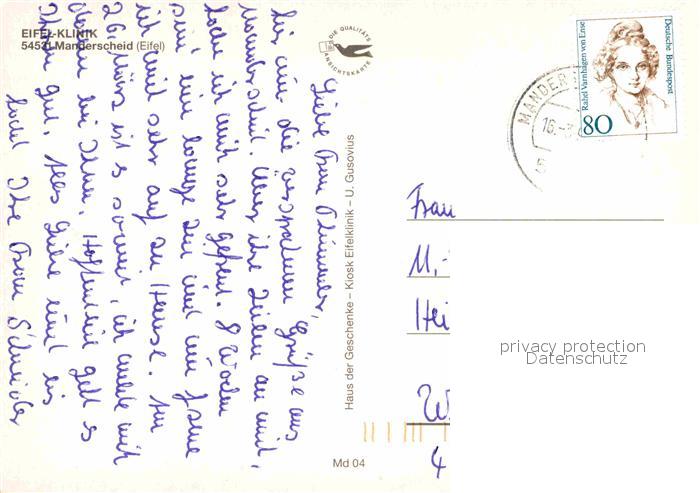 EIFEL-KLINIK
54531 Manderscheid (Eifel)
DIE QUALITÄTS
ANSICHTSKARTE
Liebe Frau
hier nun die Grüße aus
Manderscheid. Über ihre Zeilen an mich,
habe ich mich sehr gefreut. 8 Wochen
sind eine lange Zeit und nun freue
ich mich sehr auf zu Hause. Am
26. März ist es soweit, ich melde mich
dann bei Ihnen. Hoffentlich geht es
Ihnen gut. Alles Liebe und bis
bald Ihre Frau Schneider
Haus der Geschenke – Kiosk Eifelklinik – U. Gusovius
Md 04
Deutsche Bundespost
Rahel Varnhagen von Ense
80
MANDER
16.-3
5
Frau
11,-
Hei
W
4
privacy protection
Datenschutz